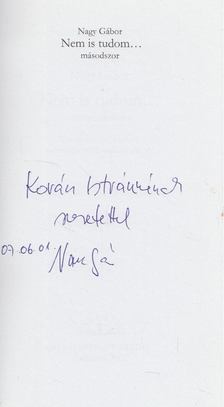 Nagy Gábor
Nem is tudom...
másodszor
Kován Istvánnénak
szeretettel
07.06.01.